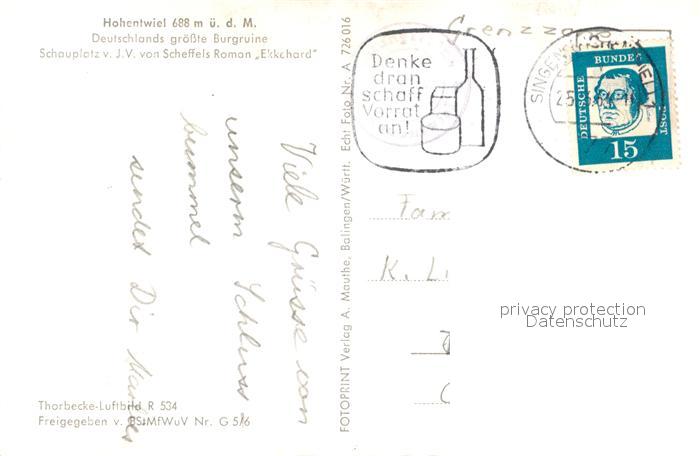 Hohentwiel 688 m ü. d. M.
Deutschlands größte Burgruine
Schauplatz v. J.V. von Scheffels Roman „Ekkehard"
Viele Grüsse von
unserm Schluss
bummel
sendet Dir
Thorbecke-Luftbild R 534
Freigegeben v. BStMfWuV Nr. G 5/6
FOTOPRINT Verlag A. Mauthe, Balingen/Württ. Echt Foto Nr. A 726 016
Denke
dran
schaff
Vorrat
an!
SINGEN
DEUTSCHE BUNDESPOST
15
Fam
K. L
privacy protection
Datenschutz